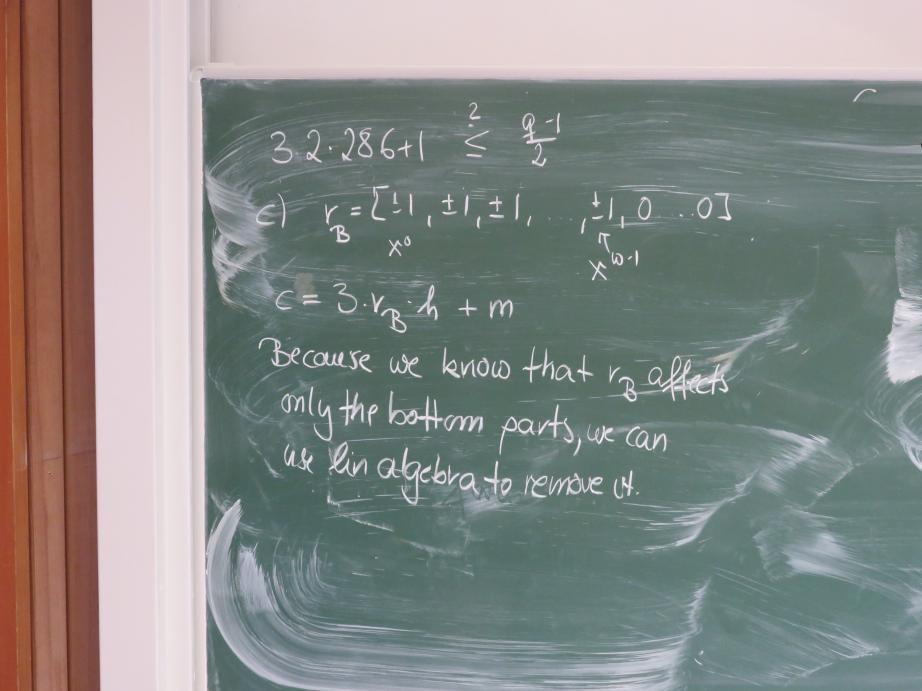 3·2·286+1 ≤? (q-1)/2
c) r_B = [±1, ±1, ±1, ..., ±1, 0 ... 0]
x^0 x^{w-1}
c = 3·r_B·h + m
Because we know that r_B affects
only the bottom parts, we can
use lin algebra to remove it.